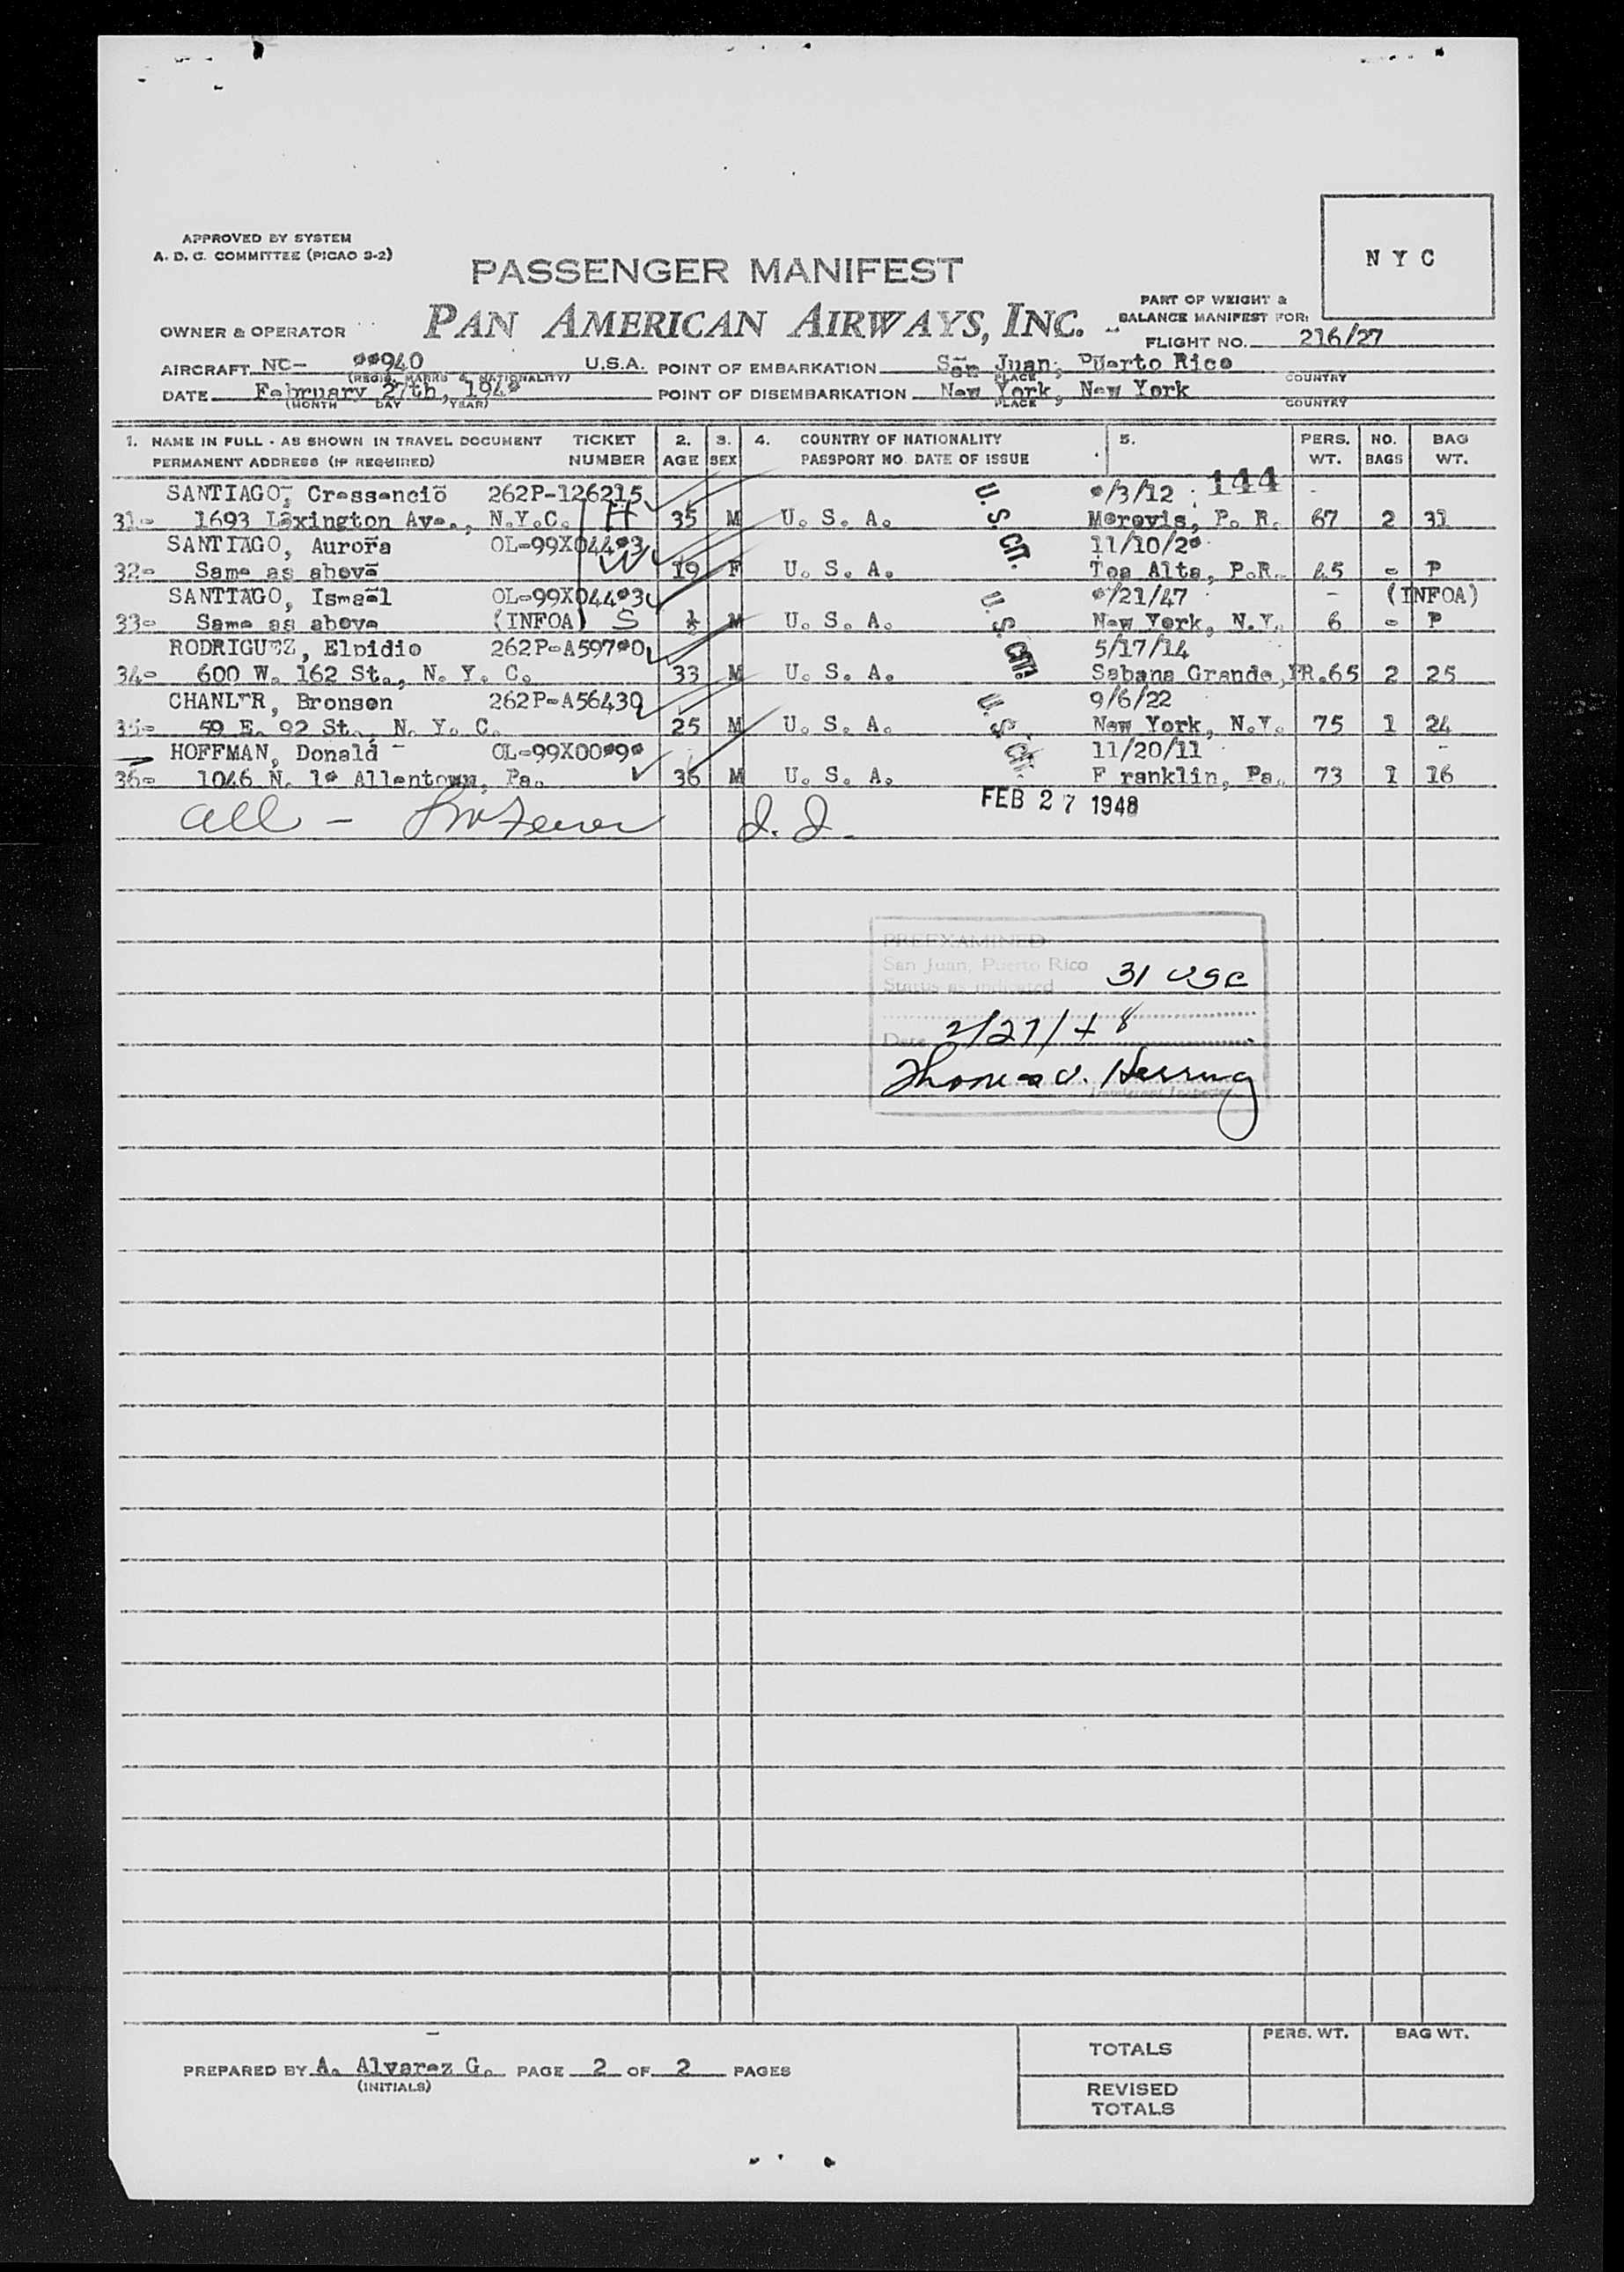 APPROVED BY SYSTEM
A. D. C. COMMITTEE (PICAO 3-2)
N Y C
PASSENGER MANIFEST
PAN AMERICAN AIRWAYS, INC.
OWNER & OPERATOR
PART OF WEIGHT &
BALANCE MANIFEST FOR:
FLIGHT NO. 216/27
AIRCRAFT NC- 88940 U.S.A. POINT OF EMBARKATION San Juan, Puerto Rico
(REGIS. MARKS & NATIONALITY) PLACE COUNTRY
DATE February 27th, 1948 POINT OF DISEMBARKATION New York, New York
(MONTH DAY YEAR) PLACE COUNTRY
1. NAME IN FULL - AS SHOWN IN TRAVEL DOCUMENT TICKET 2. 3. 4. COUNTRY OF NATIONALITY 5. PERS. NO. BAG
PERMANENT ADDRESS (IF REQUIRED) NUMBER AGE SEX PASSPORT NO. DATE OF ISSUE WT. BAGS WT.
144
SANTIAGO, Cressencio 262P-126215 8/3/12
31- 1693 Lexington Ave., N.Y.C. H 35 M U. S. A. U. S. CIT. Morovis, P. R. 67 2 31
SANTIAGO, Aurora OL-99X04483 11/10/28
32- Same as above W 19 F U. S. A. Toa Alta, P.R. 45 - P
SANTIAGO, Ismael OL-99X04483 8/21/47 - (INFOA)
33- Same as above (INFOA) S ½ M U. S. A. U. S. CIT. New York, N.Y. 6 - P
RODRIGUEZ, Elpidio 262P-A59780 5/17/14
34- 600 W. 162 St., N. Y. C. 33 M U. S. A. Sabana Grande, PR. 65 2 25
CHANLER, Bronson 262P-A56430 9/6/22
35- 59 E. 92 St., N. Y. C. 25 M U. S. A. U. S. CIT. New York, N.Y. 75 1 24
HOFFMAN, Donald OL-99X00898 11/20/11
36- 1046 N. 18 Allentown, Pa. 36 M U. S. A. F ranklin, Pa. 73 1 16
FEB 27 1948
all -
PREEXAMINED
San Juan, Puerto Rico
Status as indicated 31 USC
Date 2/27/48
Thomas V. Herring
Immigrant Inspector
PREPARED BY A. Alvarez G. PAGE 2 OF 2 PAGES
(INITIALS)
PERS. WT. BAG WT.
TOTALS
REVISED
TOTALS